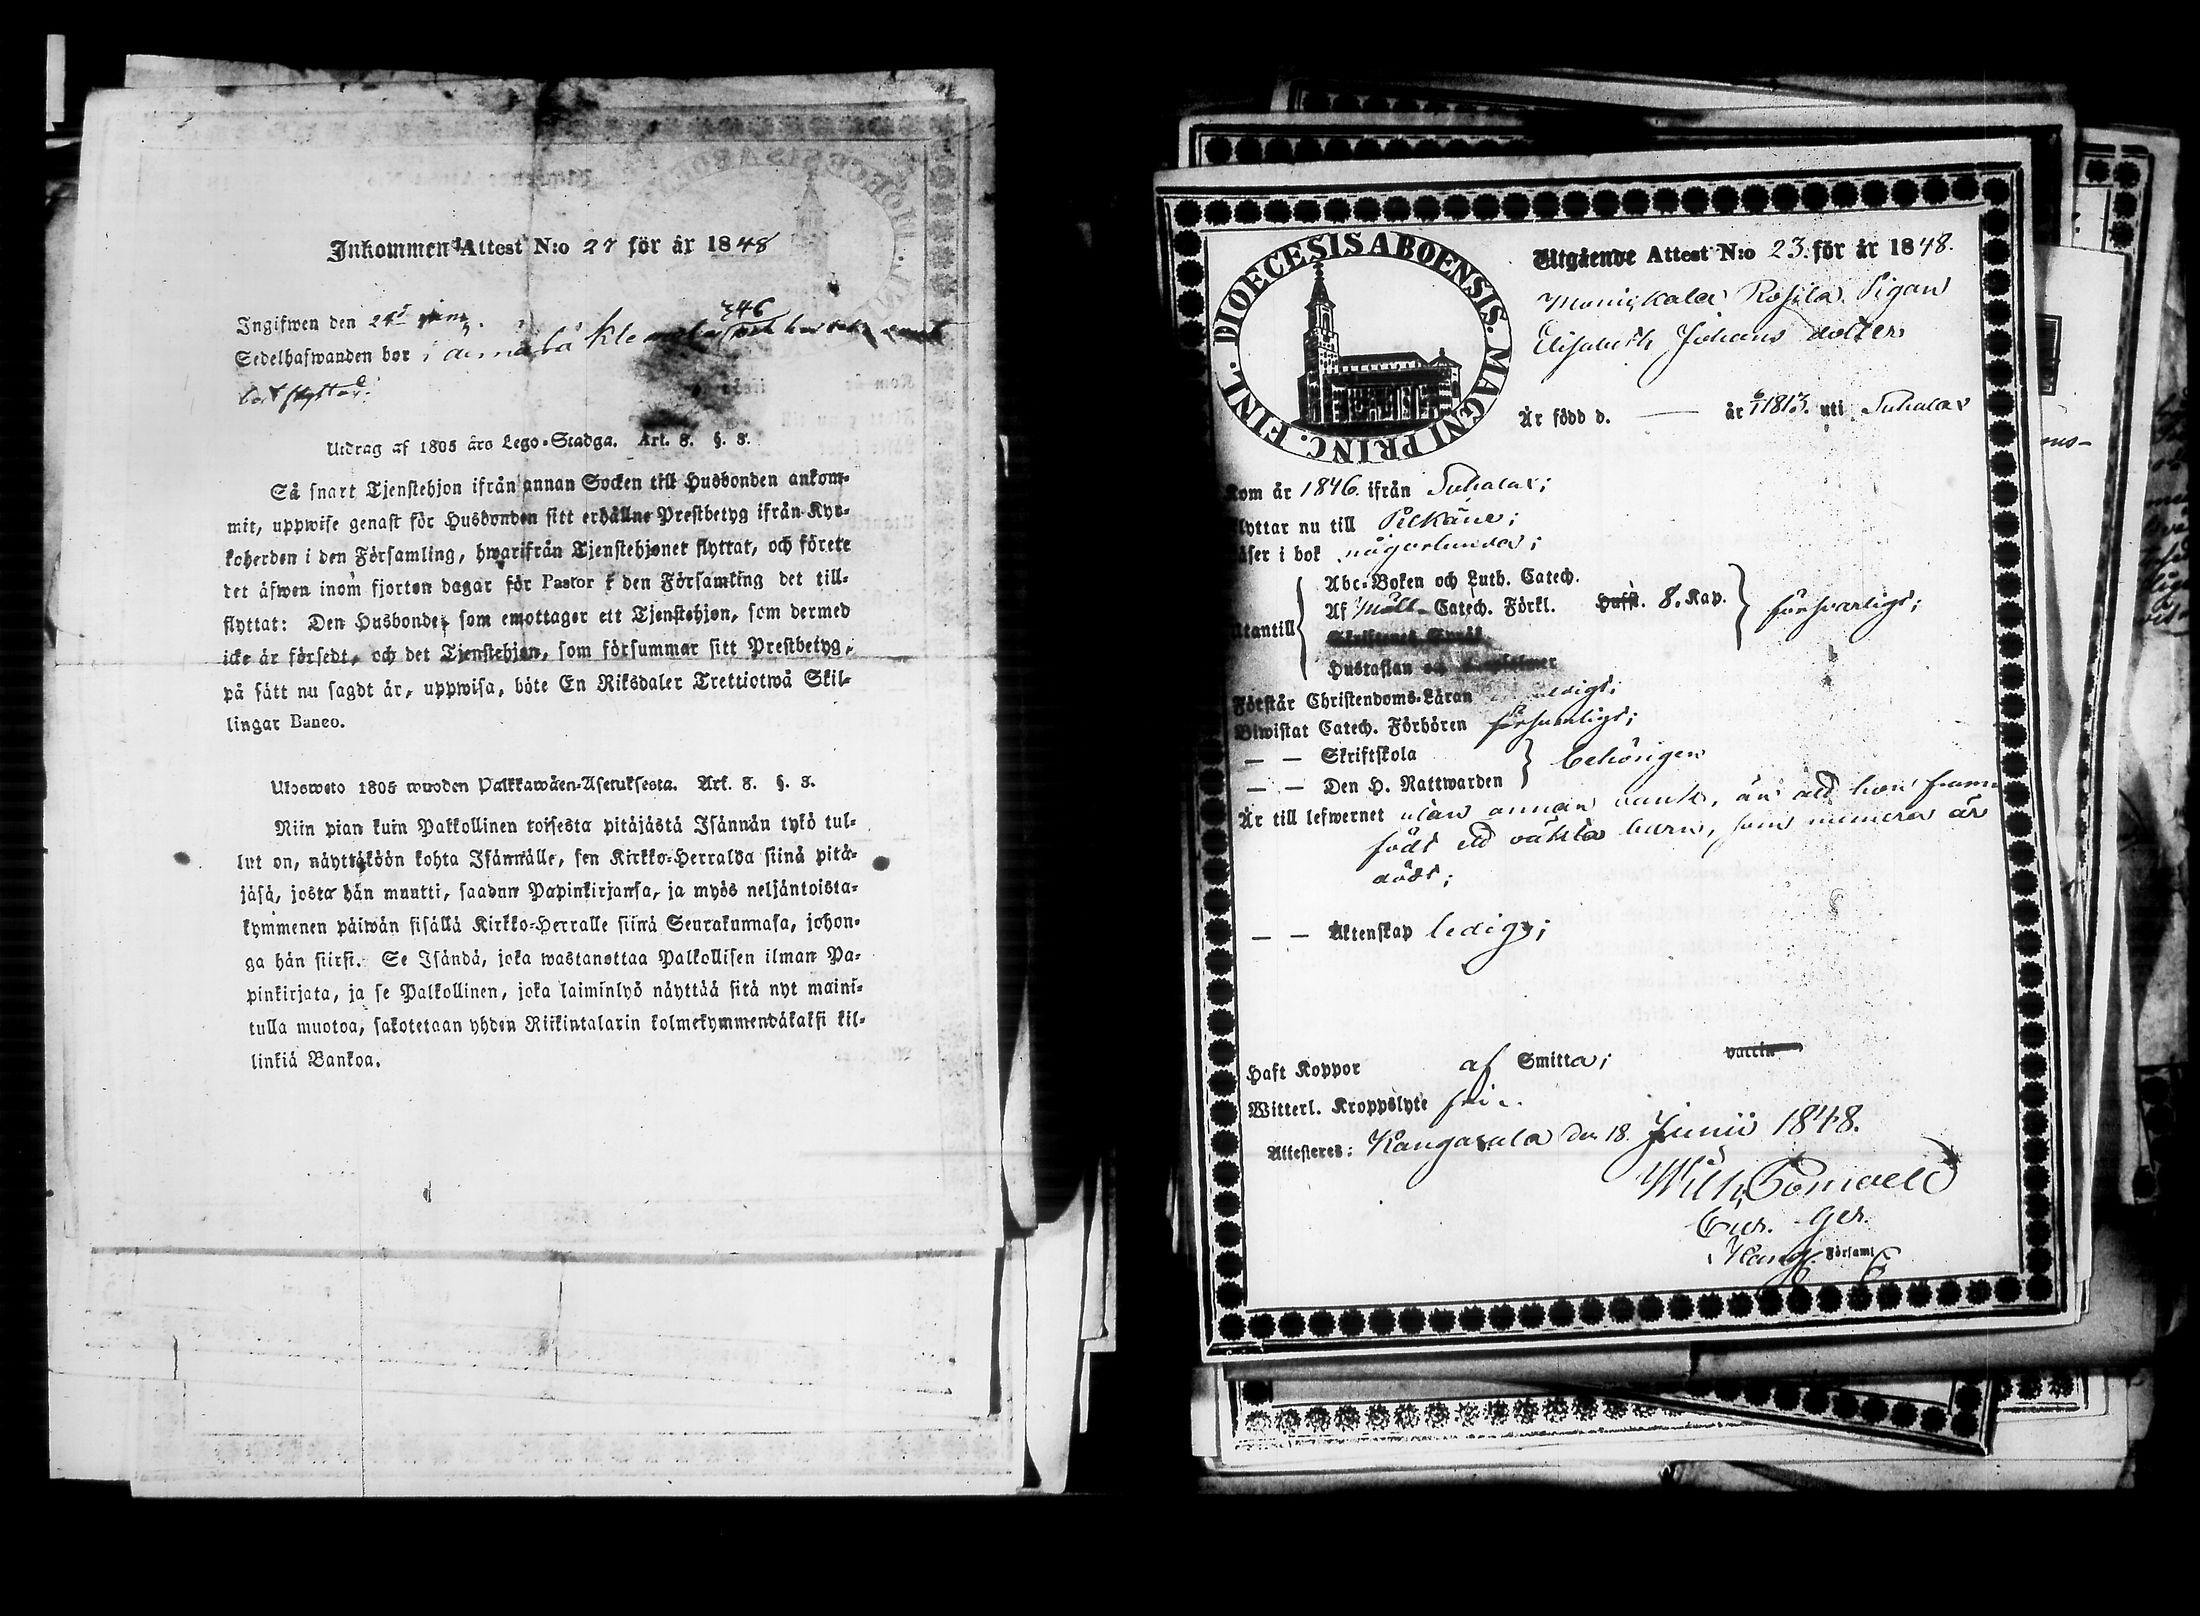 Inkommen Attest N:o 27 för år 1848
Ingifwen den
Sedelhafwanden bor i
Utdrag af 1805 års Lego-Stadga. Art. 8. §. 3.
Så snart Tjenstehjon ifrån annan Socken till Husbonden ankom-
mit, uppwise genast för Husbonden sitt erhållne Prestbetyg ifrån Kyr-
koherden i den Församling, hwarifrån Tjenstehjonet flyttat, och förete
det äfwen inom fjorton dagar för Pastor i den Församling det till-
flyttat: Den Husbonde, som emottager ett Tjenstehjon, som dermed
icke är försedt, och det Tjenstehjon, som försummar sitt Prestbetyg,
på sätt nu sagdt är, uppwisa, böte En Riksdaler Trettiotwå Skil-
lingar Banco.
Ulosweto 1805 wuoden Palkkawäen-Asetuksesta. Art. 8. §. 3.
Niin pian kuin Palkollinen toisesta pitäjästä Isännän tykö tul-
lut on, näyttäköön kohta Isännälle, sen Kirkko-Herralda siinä pitä-
jäsä, josta hän muutti, saadun Papinkirjansa, ja myös neljäntoista-
kymmenen päiwän sisällä Kirkko-Herralle siinä Seurakunnasa, johon-
ga hän siirsi. Se Isändä, joka wastanottaa Palkollisen ilman Pa-
pinkirjata, ja se Palkollinen, joka laiminlyö näyttää sitä nyt maini-
tulla muotoa, sakotetaan yhden Riikintalarin kolmekymmendäkaksi kil-
linkiä Bankoa.
DIOECESIS ABOENSIS. MAGNI PRINC. FINL.
Utgående Attest N:o 23. för år 1848.
Rossila Pigan
Elisabeth Johans dotter
Är född d. — år 1813. uti Suhalax
Kom år 1846. ifrån Suhalax;
flyttar nu till Pelkäne;
läser i bok någorlunda;
Utantill
Abc-Boken och Luth. Catech.
Af Catech. Förkl. 8. Kap. försvarligt;
Hustaflan
Förstår Christendoms-Läran
Biwistat Catech. Förhören
— — Skriftskola
— — Den H. Nattwarden behörigen
Är till lefwernet utan annan vank, än att hon fram-
födt ett oäkta barn, som numera är
dödt;
— — Äktenskap ledig;
Haft Koppor af Smitta; vaccin
Witterl. Kroppslyte fri.
Attesteres: Kangasala den 18. Junii 1848.
Wilh.
Kang. Församl.